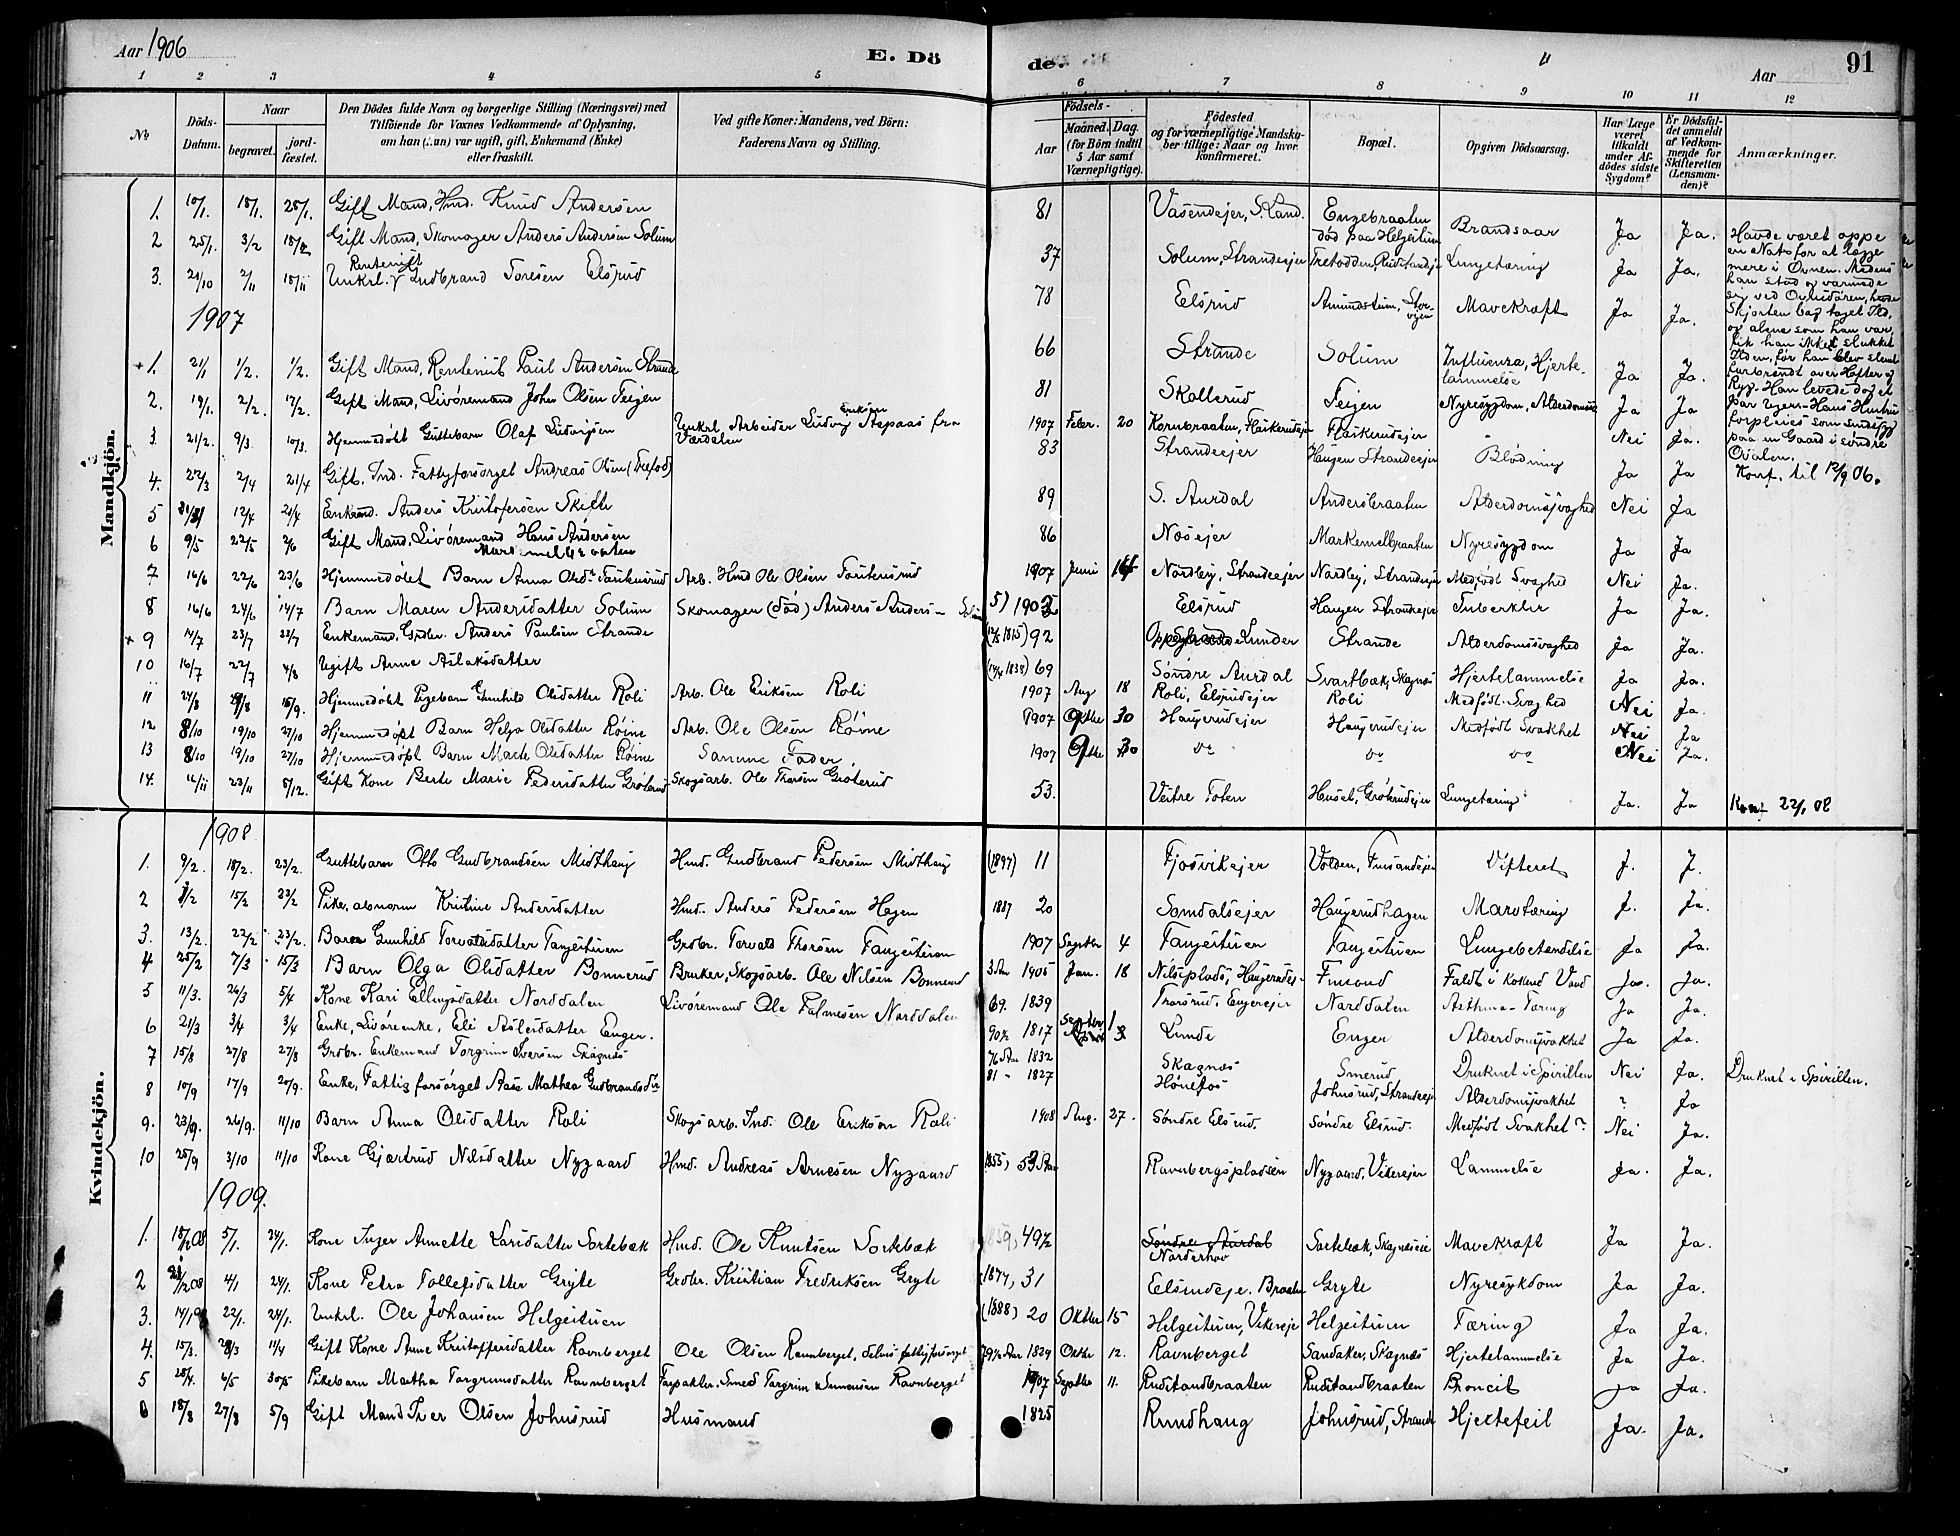 Aar 1906
E. Dö
de.
Aar
91
1 2 3 4 5 6 7 8 9 10 11 12
No
Döds-Datum.
Naar
begravet.
jord-fæstet.
Den Dödes fulde Navn og borgerlige Stilling (Næringsvei) med
Tilföiende for Voxnes Vedkommende af Oplysning,
om han (hun) var ugift, gift, Enkemand (Enke)
eller fraskilt.
Ved gifte Koner: Mandens, ved Börn:
Faderens Navn og Stilling.
Födsels-
Aar
Maaned.
Dag.
(for Börn indtil
5 Aar samt
Værnepligtige).
Födested
og for værnepligtige Mandska-
ber tillige: Naar og hvor
konfirmeret.
Bopæl.
Opgiven Dödsaarsag.
Har Læge
været
tilkaldt
under Af-
dödes sidste
Sygdom?
Er Dödsfal-
det anmeldt
af Vedkom-
mende for
Skifteretten
(Lensman-
den)?
Anmærkninger.
Mandkjön.
1. 10/1. 18/1. 25/1. Gift Mand, Hmd. Knud Andersen 81 Vasendejer, S. Land. Engebraaten død paa Helgeituen Brandsaar Ja Ja.
2 25/1. 3/2 18/2 Gift Mand, Skomager Anders Andersen Solum 37 Solum, Strandeejer Lungetæring Ja Ja.
3. 21/10 2/11 18/11 Unkrl. Rentenist Gudbrand Toresen Elsrud 78 Elsrud Mavekræft Ja Ja.
Havde været oppe
en Nat for at lægge
mere i Ovnen. Medens
han stod og varmede
sig ved Ovnsdøren, havde
Skjorten bag taget Ild,
og alene som han var,
fik han ikke slukket
Ilden, før han blev slemt
forbrændt over Hofter og
Ryg. Han levede dog et
par uger. Hans Hustru
forpleies som sindssyg
paa en Gaard i søndre
Oialen.
Konf. til 12/9 06.
1907
+1. 21/1 1/2. 1/2. Gift Mand, Rentenist Paul Andersen Strande 66 Strande Solum Influenza, Hjertelammelse Ja Ja.
2. 19/1. 2/2. 17/2. Gift Mand, Livøremand John Olsen Feigen 81 Skollerud Feigen Nyresygdom, Alderdomss. Ja Ja
3. 21/2. 9/3. 10/3. Hjemmedøbt Guttebarn Olaf Ludvigsen Unkrl. Arbeider Ludvig Eriksen Stapaas fra Værdalen 1907 Febr. 20 Kornbraaten, Flaskerudejer Flaskerudejer Nei Ja.
4. 22/3 2/4 21/4 Gift, Ind. Fattigforsørget Andreas Olsen (Træfod) 83 Strandeejer Haugen Strandeejer Blødning Ja Ja
5 31/3 12/4 21/4 Enkemd. Anders Kristofersen Skifte 89 S. Aurdal Andersbraaten Alderdomssvaghed Nei Ja
6 9/5 22/5 2/6 Gift Mand, Livøremand Hans Andersen Markemelbraaten 86 Næsejer Markemelbraaten Nyresygdom Ja Ja
7 16/6 22/6 23/6 Hjemmedøbt Barn Anna Olsdtr. Arb. Hmd Ole Olsen 1907 Juni 16 Nordbej, Strandeejer Nordbej, Strandeejer Medfødt Svaghed Nei Ja.
8 16/6 24/6 14/7 Barn Maren Andersdatter Solum Skomager (død) Anders Anders- Solum 5) 1902 Elsrud Haugen Strandeejer Tuberkler Ja Ja.
+ 9 14/7 23/7 23/7 Enkemand, Grdbr. Anders Paulsen Strande (12/5 1815) 92 Lunder Strande Alderdomssvaghed Ja Ja.
10 16/7 22/7 4/8 Ugift Anne Aslaksdatter 69 Søndre Aurdal Svartbæk, Skagnæs Hjertelammelse Ja Ja.
11 24/8 8/8 15/9. Hjemmedøbt Pigebarn Gunhild Olsdatter Roli Arb. Ole Eriksen Roli 1907 Aug 18 Roli, Elsrudejer Roli Medfødt Svaghed Nei Ja.
12 8/10 19/10 27/10 Hjemmedøbt Barn Helga Olsdatter Røine Arb. Ole Olsen Røine 1907 Oktbr 30 Haugerudejer Haugerudejer Medfødt Svakhet Nei Ja
13 8/10 19/10 27/10 Hjemmedøbt Barn Marte Olsdatter Røine Samme Fader 1907 30 do do do Nei Ja.
14. 16/11 23/11 8/12. Gift Kone Berte Marie Pedersdatter Grøterud Skogsarb. Ole Thorsen Grøterud 53. Vestre Toten Huset, Grøterudejer Lungetæring Ja. Ja Konf 22/1 08
Kvindekjön.
1908
1. 9/2. 18/2. 23/2. Guttebarn Otto Gudbrandsen Midthaug Hmd. Gudbrand Pedersen Midthaug (1897) 11 Fjosvikejer Volden, Fursandejer Vifteret J. J.
2 1/2 15/2 23/2 Pike, abnorm Kristine Andersdatter Hmd. Anders Pedersen Hagen 1887 20 Somdalsejer Haugerudhagen Marvtæring J. Ja.
3. 13/2. 22/2 23/2. Barn Gunhild Torvaldsdatter Fangeituen Grdbr. Torvald Thorsen Fangeituen 1907 Septbr 4 Fangeituen Fangeituen Lungebetændelse Ja Ja.
4 25/2 7/3 15/3 Barn Olga Olsdatter Bonnerud Bruker, Skogsarb. Ole Nilsen Bonnerud 3 Aar 1905 Jan. 18 Nilseplads, Haugerudej. Faldt i kokend Vand Ja. Ja.
5 11/3. 24/3 5/4 Kone Kari Ellingsdatter Norddalen Livøremand Ole Palmesen Norddalen 69. 1839 Thorsrud, Engerejer Norddalen Asthma-Tæring Ja Ja.
6 21/3 3/4 3/4 Enke, Livøreenke, Eli Aslesdatter Enger. 90 1/2 1817 Septbr 1 Lunde Enger Alderdomssvakhet Ja Ja.
7 15/8 27/8 27/8 Grdbr. Enkemand Torgrim Iversen Skagnæs 76 Aar 1832 Skagnæs Smerud Druknet i Spirillen Nei Ja. Druknet i Spirillen.
8 10/9 17/9 20/9. Enke, Fattigforsørget Aase Mathea Gudbrandsdtr 81 - 1827 Hønefos Johnsrud, Strandeej Alderdomssvakhet ? Ja
9. 23/9. 26/9. 11/10 Barn Anna Olsdatter Roli Skogsarb. Ind. Ole Eriksøn Roli 1908 Aug. 27. Søndre Elsrud. Søndre Elsrud. Medfødt Svakhet? Nei Ja.
10 25/9 3/10 11/10 Kone Gjærtrud Nilsdatter Nygaard Hmd. Andreas Arnesen Nygaard 1855) 53 Aar Ravnbergspladsen Nygaard, Vikerejer Lammelse Ja. Ja.
1909.
1. 18/12 08 5/1. 24/1. Kone Inger Annette Larsdatter Sortebæk Hmd. Ole Knutsen Sortebæk 1859, 49 1/2 Søndre Aurdal Norderhov Sortebæk, Skagnæseie Mavekræft Ja Ja.
2 28/12 08 4/1 24/1. Kone Petra Tollefsdatter Gryte Grdbr. Kristian Fredriksen Gryte 1877, 31 Elsrudeje. Braaten Gryte Nyresykdom Ja Ja.
3. 14/1 9 22/1. 24/1. Unkrl. Ole Johansen Helgeituen (1888) 20 Oktbr 15 Helgeituen, Vikereje Helgeituen Tæring Ja Ja.
4. 15/3. 29/3 11/4 Gift Kone Anne Kristoffersdatter Ravnberget Ole Olsen Ravnberget, fattigforsørget 79 1/2 Aar 1829 Oktbr 12. Ravnberget Sandaker, Skagnæs Hjertelammelse Ja Ja.
5 28/4. 6/5 30/5 Pikebarn Martha Torgrimsdatter Ravnberget Forpakter, Smed Torgrim Gunnersen Ravnberget 1907 Septbr 11. Rudstandbraaten Rudstandbraaten Broncit Ja Ja.
6 18/8 27/8 5/9 Gift Mand Iver Olsen Johnsrud Husmand 1825 Rundhaug Johnsrud, Strande Hjertefeil Ja. Ja.